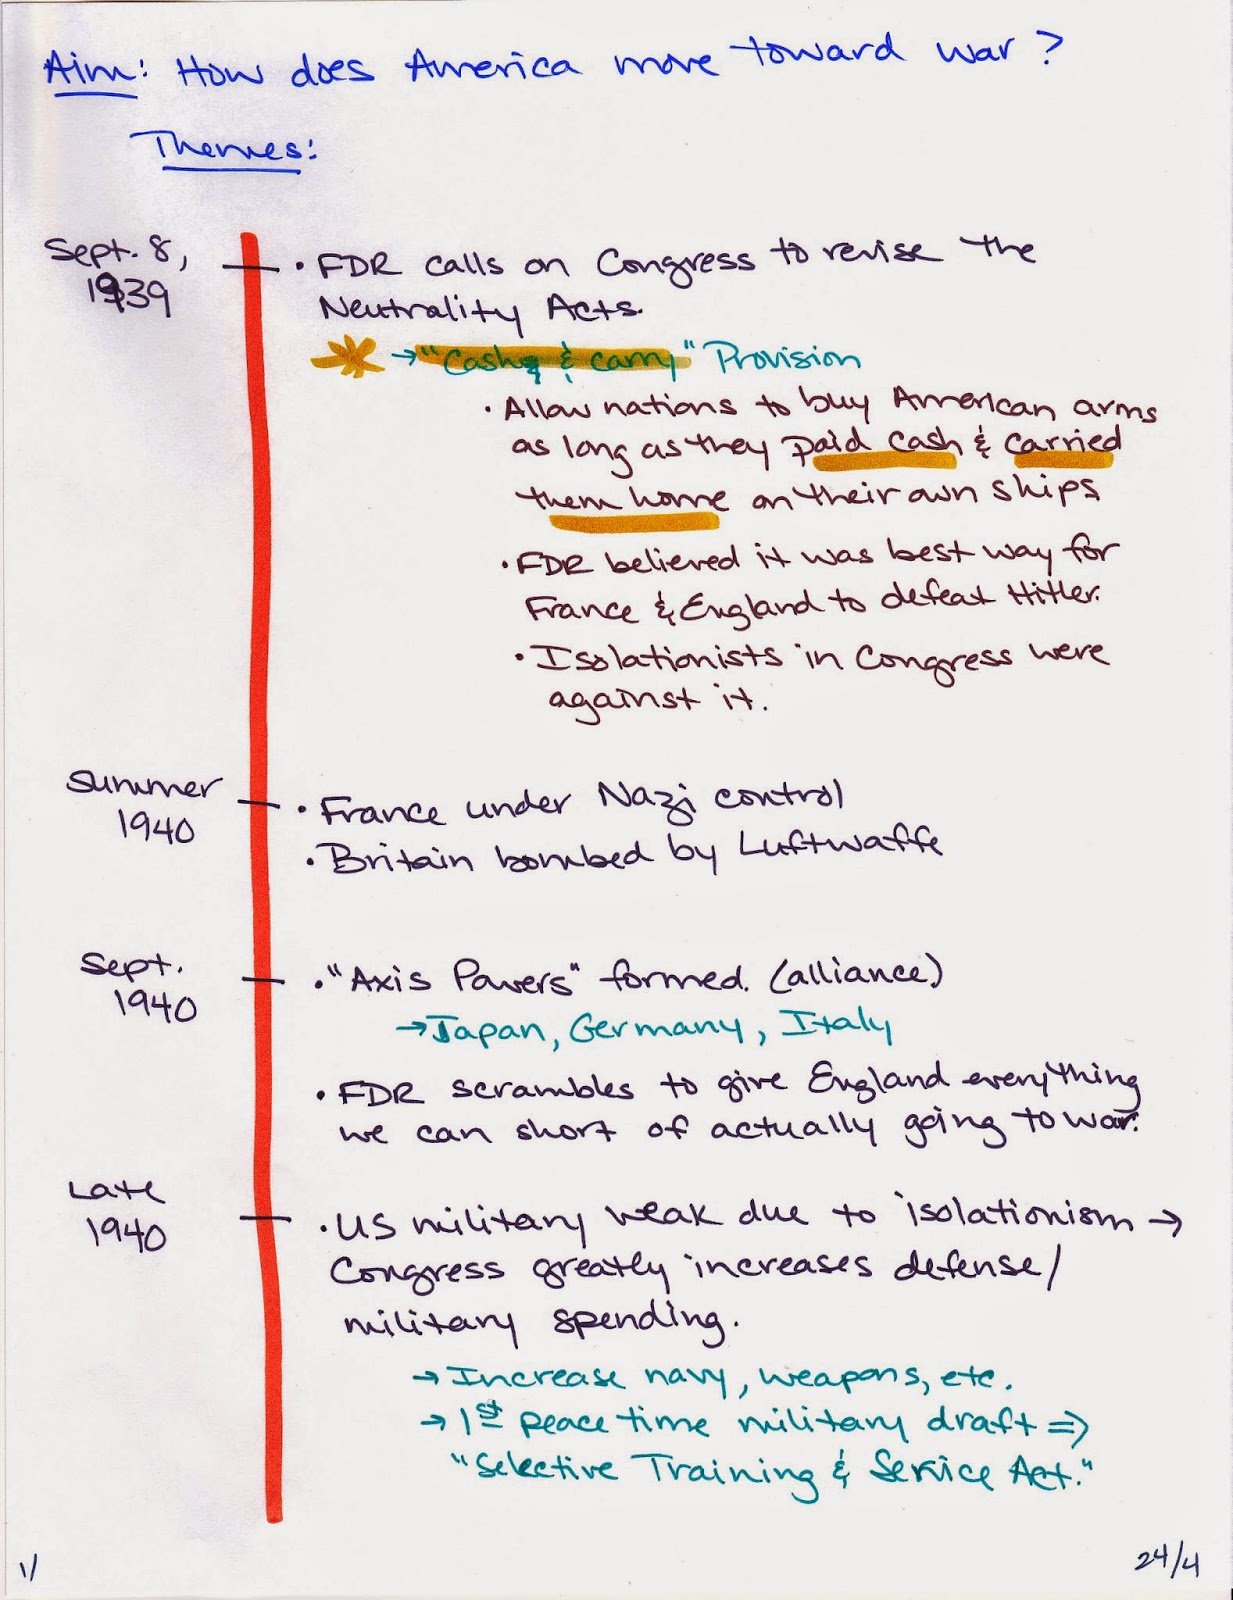 Aim: How does America move toward war?
Themes:
Sept. 8,
1939
• FDR calls on Congress to revise the
Neutrality Acts.
→ "Cash & carry" Provision
• Allow nations to buy American arms
as long as they paid cash & carried
them home on their own ships
• FDR believed it was best way for
France & England to defeat Hitler.
• Isolationists in Congress were
against it.
Summer
1940
• France under Nazi control
• Britain bombed by Luftwaffe
Sept.
1940
• "Axis Powers" formed. (alliance)
→ Japan, Germany, Italy
• FDR scrambles to give England everything
we can short of actually going to war.
Late
1940
• US military weak due to isolationism →
Congress greatly increases defense/
military spending.
→ Increase navy, weapons, etc.
→ 1st peace time military draft ⇒
"Selective Training & Service Act."
1/
24/4